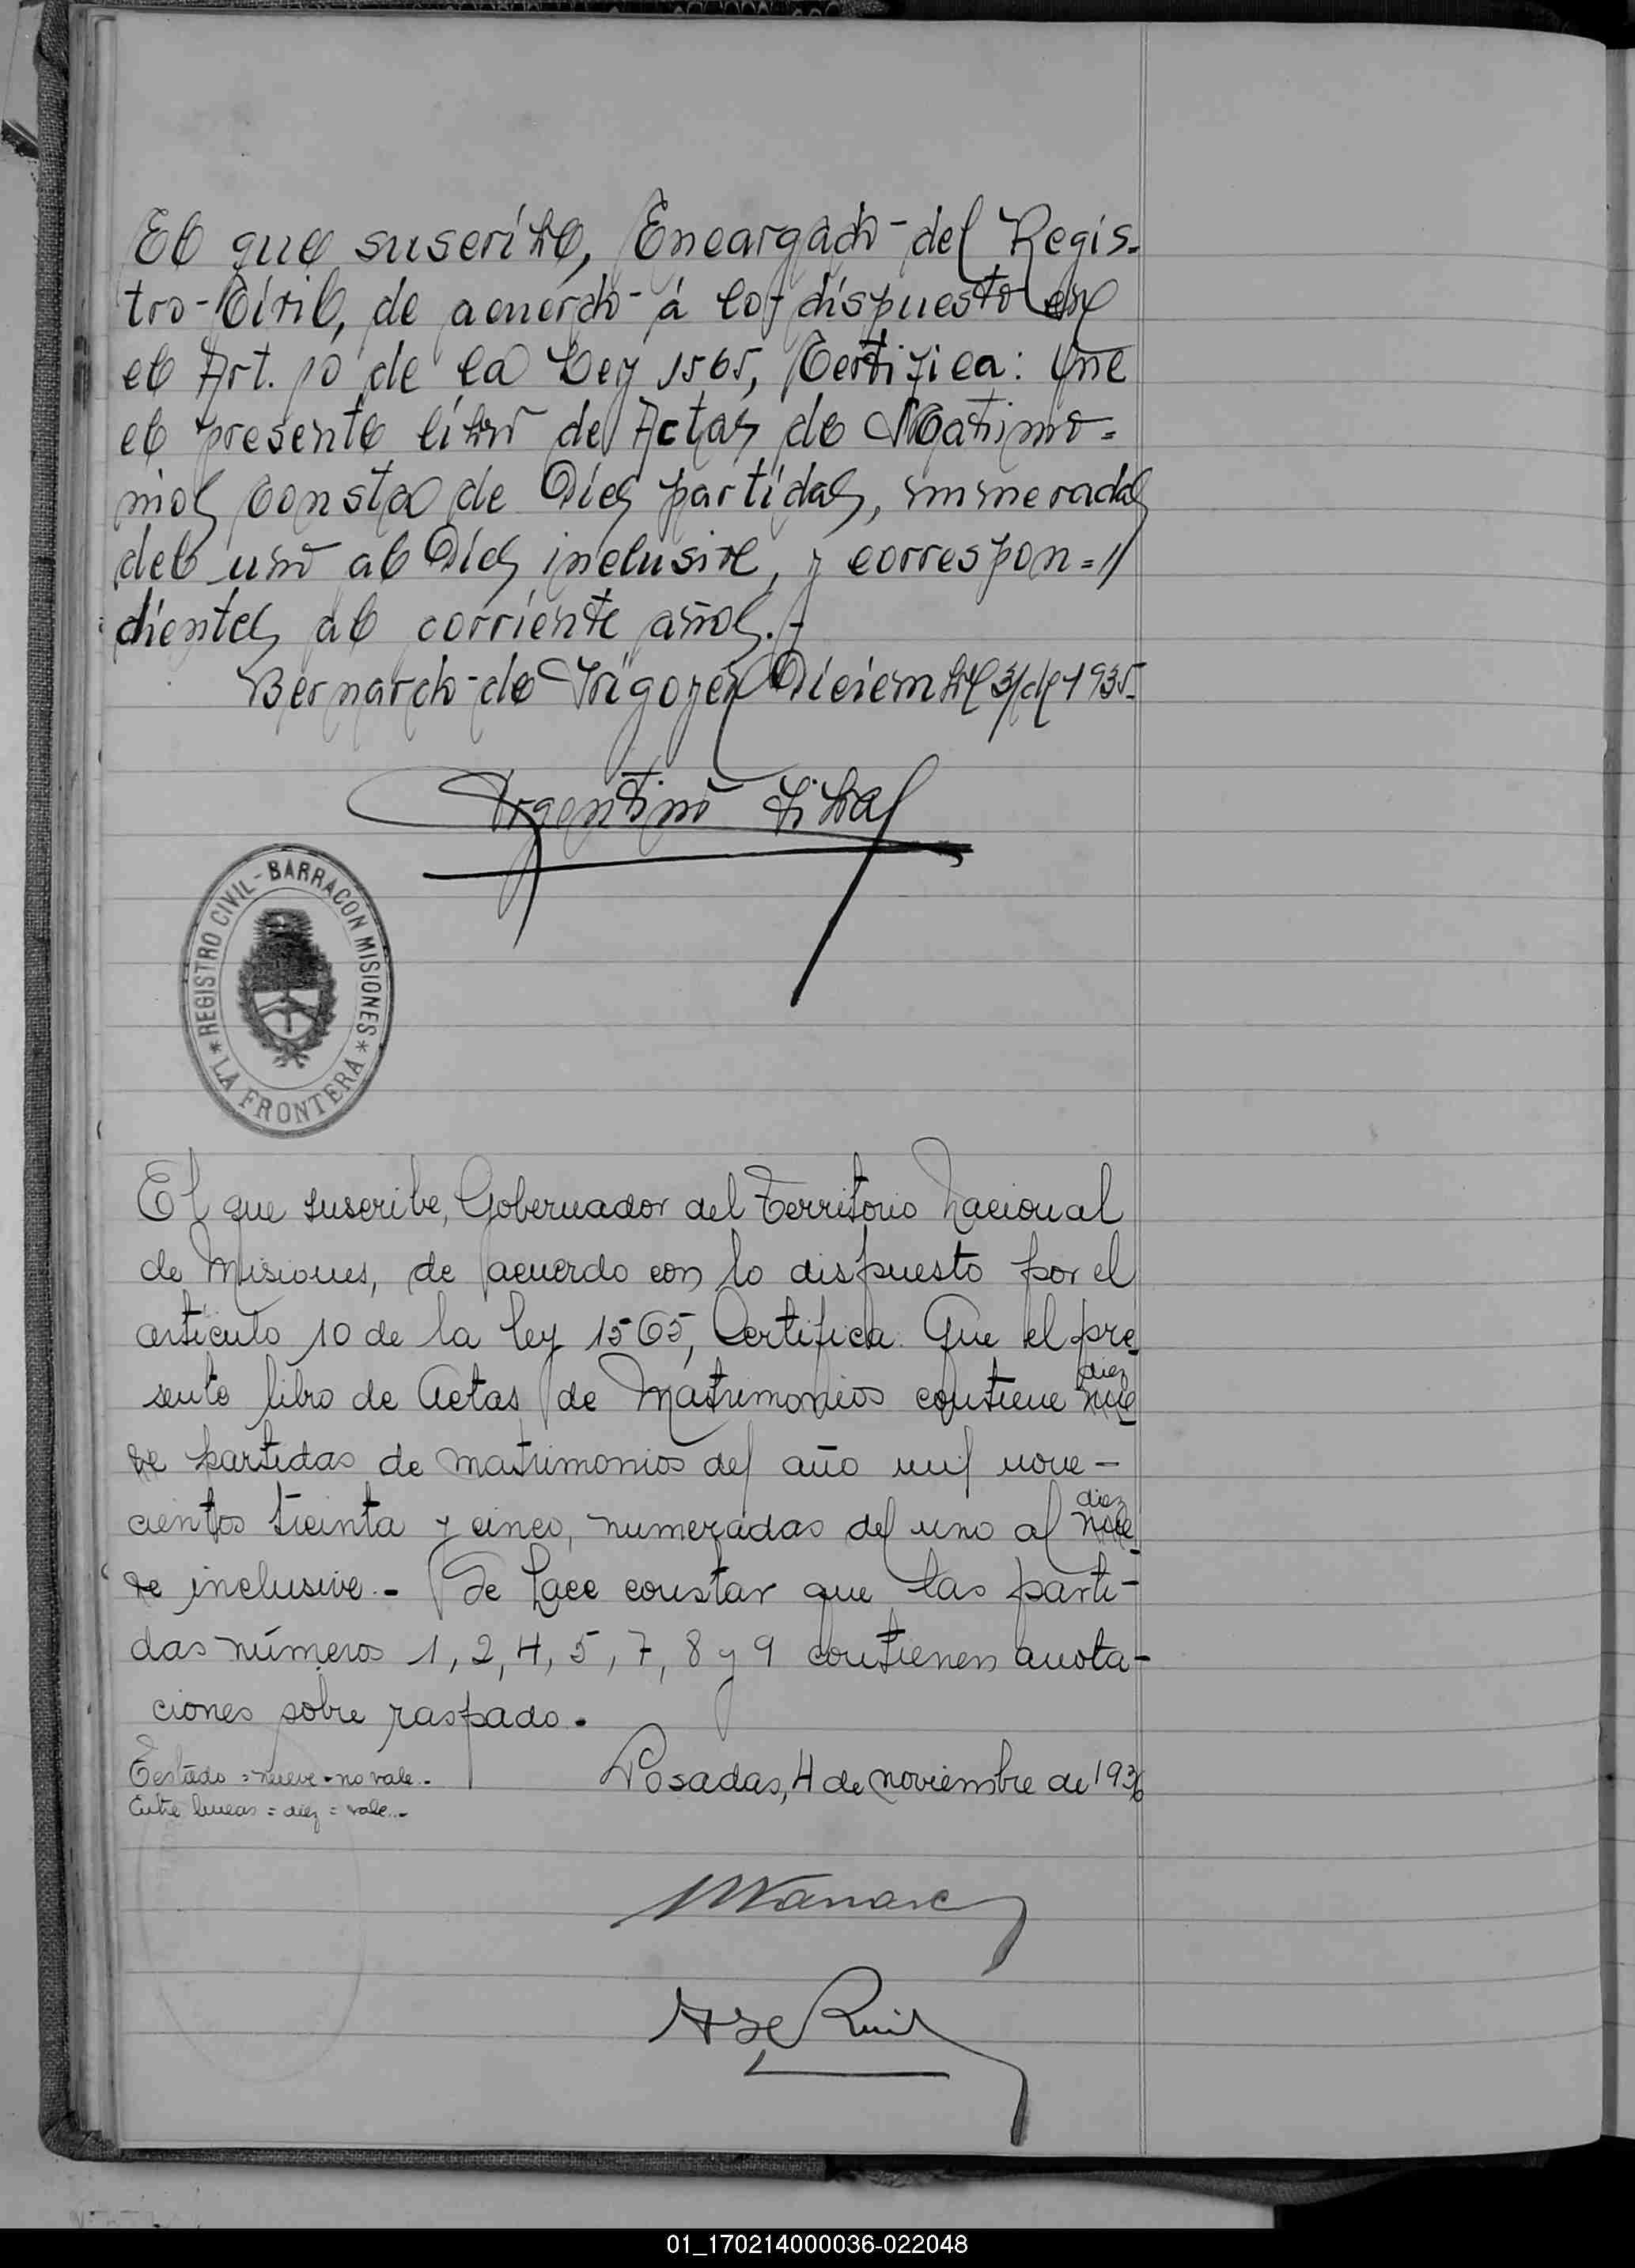 El que suscribe, Encargado del Regis-
tro-Civil, de acuerdo á lo dispuesto en
el Art. 10 de la Ley 1565, Certifica: Que
el presente libro de Actas de Matrimo=
nios consta de Dies partidas, numeradas
del uno al Dies inclusive, y correspon=//
dientes al corriente años.-
Bernardo-de Irigoyen Diciembre 31 de 1935.-
Argentino
REGISTRO CIVIL - BARRACÓN MISIONES
* LA FRONTERA *
El que suscribe, Gobernador del Territorio Nacional
de Misiones, de acuerdo con lo dispuesto por el
artículo 10 de la ley 1565, Certifica: Que el pre-
diez
sente libro de Actas de Matrimonios contiene nue-
ve partidas de matrimonios del año mil nove-
diez
cientos treinta y cinco, numeradas del uno al nue-
ve inclusive.- Se hace constar que las parti-
das números 1, 2, 4, 5, 7, 8 y 9 contienen anota-
ciones sobre raspado.-
Testado = nueve - no vale.-
Posadas, 4 de noviembre de 1936
Entre lineas = diez = vale.-
Ruiz
01_170214000036-022048